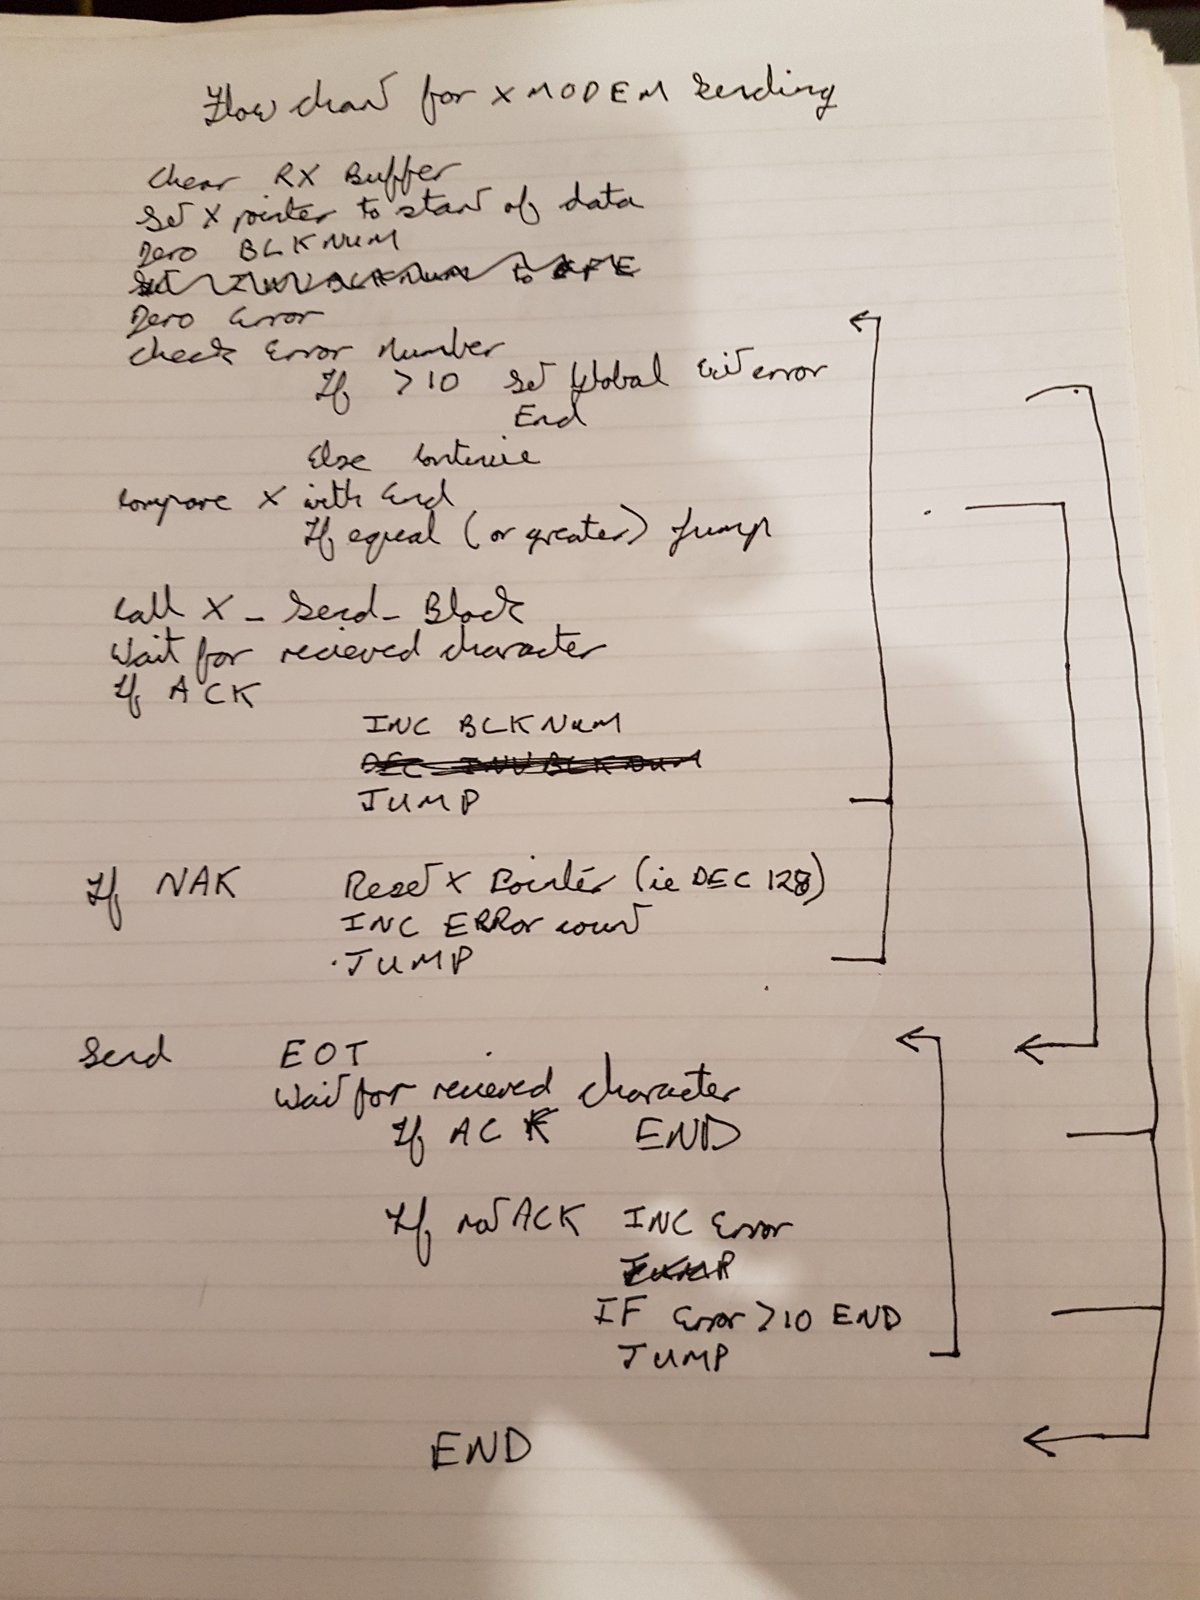 Flow chart for XMODEM Sending
Clear RX Buffer
Set X pointer to start of data
Zero BLKNUM
Set INVBLKNUM to FE
Zero Error
Check Error Number
If >10 Set Global Exit error
End
Else Continue
Compare X with End
If equal (or greater) Jump
Call X_Send_Block
Wait for recieved character
If ACK
INC BLKNUM
DEC INVBLKNUM
JUMP
If NAK Reset X Pointer (ie DEC 128)
INC ERRor count
JUMP
Send EOT
Wait for recieved character
If ACK END
If not ACK INC Error
JUMP
IF Error >10 END
JUMP
END